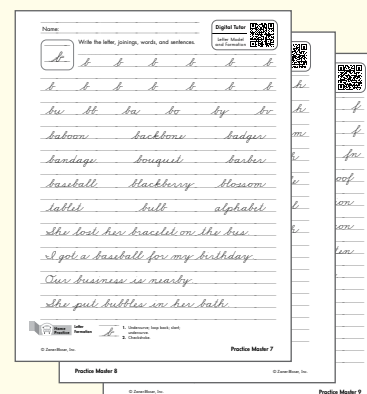 Name:
Digital Tutor
Letter Model
and Formation
Write the letter, joinings, words, and sentences.
b b b b b b b
b b b b b b b
bu bb ba bo by br
baboon backbone badger
bandage bouquet barber
baseball blackberry blossom
tablet bulb alphabet
She lost her bracelet on the bus.
I got a baseball for my birthday.
Our business is nearby.
She put bubbles in her bath.
Home
Practice
Letter
Formation
b
1. Undercurve; loop back; slant;
undercurve.
2. Checkstroke.
© Zaner-Bloser, Inc.
Practice Master 7
h
h
Practice Master 8
© Zaner-Bloser, Inc.
f
f
fn
oof
on
on
© Zaner-Bloser, Inc.
Practice Master 9